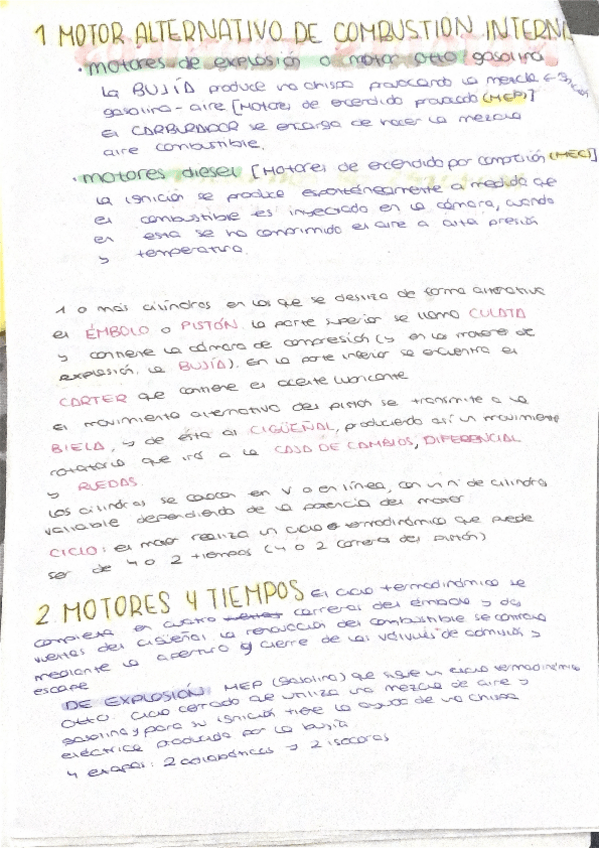 1 MOTOR ALTERNATIVO DE COMBUSTION INTERNA
· motores de explosión o motor Otto gasolina
La BUJÍA produce una chispa provocando la mezcla
gasolina-aire [Motores de encendido provocado (MEP)]
El CARBURADOR se encarga de hacer la mezcla
aire combustible.
· motores diesel [Motores de encendido por compresión (MEC)]
La ignición se produce espontáneamente a medida que
el combustible es inyectado en la cámara, cuando
en esta se ha comprimido el aire a alta presión
y temperatura.
1 o más cilindros en los que se desliza de forma alternativa
el ÉMBOLO o PISTÓN. La parte superior se llama CULATA
y contiene la cámara de compresión (y en los motores de
explosión, la BUJÍA). En la parte inferior se encuentra el
CARTER que contiene el aceite lubricante
el movimiento alternativo del pistón se transmite a la
BIELA, y de ésta al CIGÜEÑAL, produciendo así un movimiente
rotatorio que irá a la CAJA DE CAMBIOS, DIFERENCIAL
y RUEDAS.
Los cilindros se colocan en V o en línea, con un nº de cilindros
variable dependiendo de la potencia del motor
CICLO: el motor realiza un ciclo termodinámico que puede
ser de 4 o 2 tiempos (4 o 2 carreras del pistón)
2. MOTORES 4 TIEMPOS El ciclo termodinámico se
completa en cuatro carreras del émbolo y dos
vueltas del cigüeñal. La renovación del combustible se controla
mediante la apertura y cierre de las válvulas de admisión y
escape
DE EXPLOSIÓN: MEP (gasolina) que sigue un ciclo termodinámico
Otto. Ciclo cerrado que utiliza una mezcla de aire y
gasolina y para su ignición tiene la ayuda de una chispa
eléctrica producida por la bujía
4 etapas: 2 adiabáticas y 2 isocoras